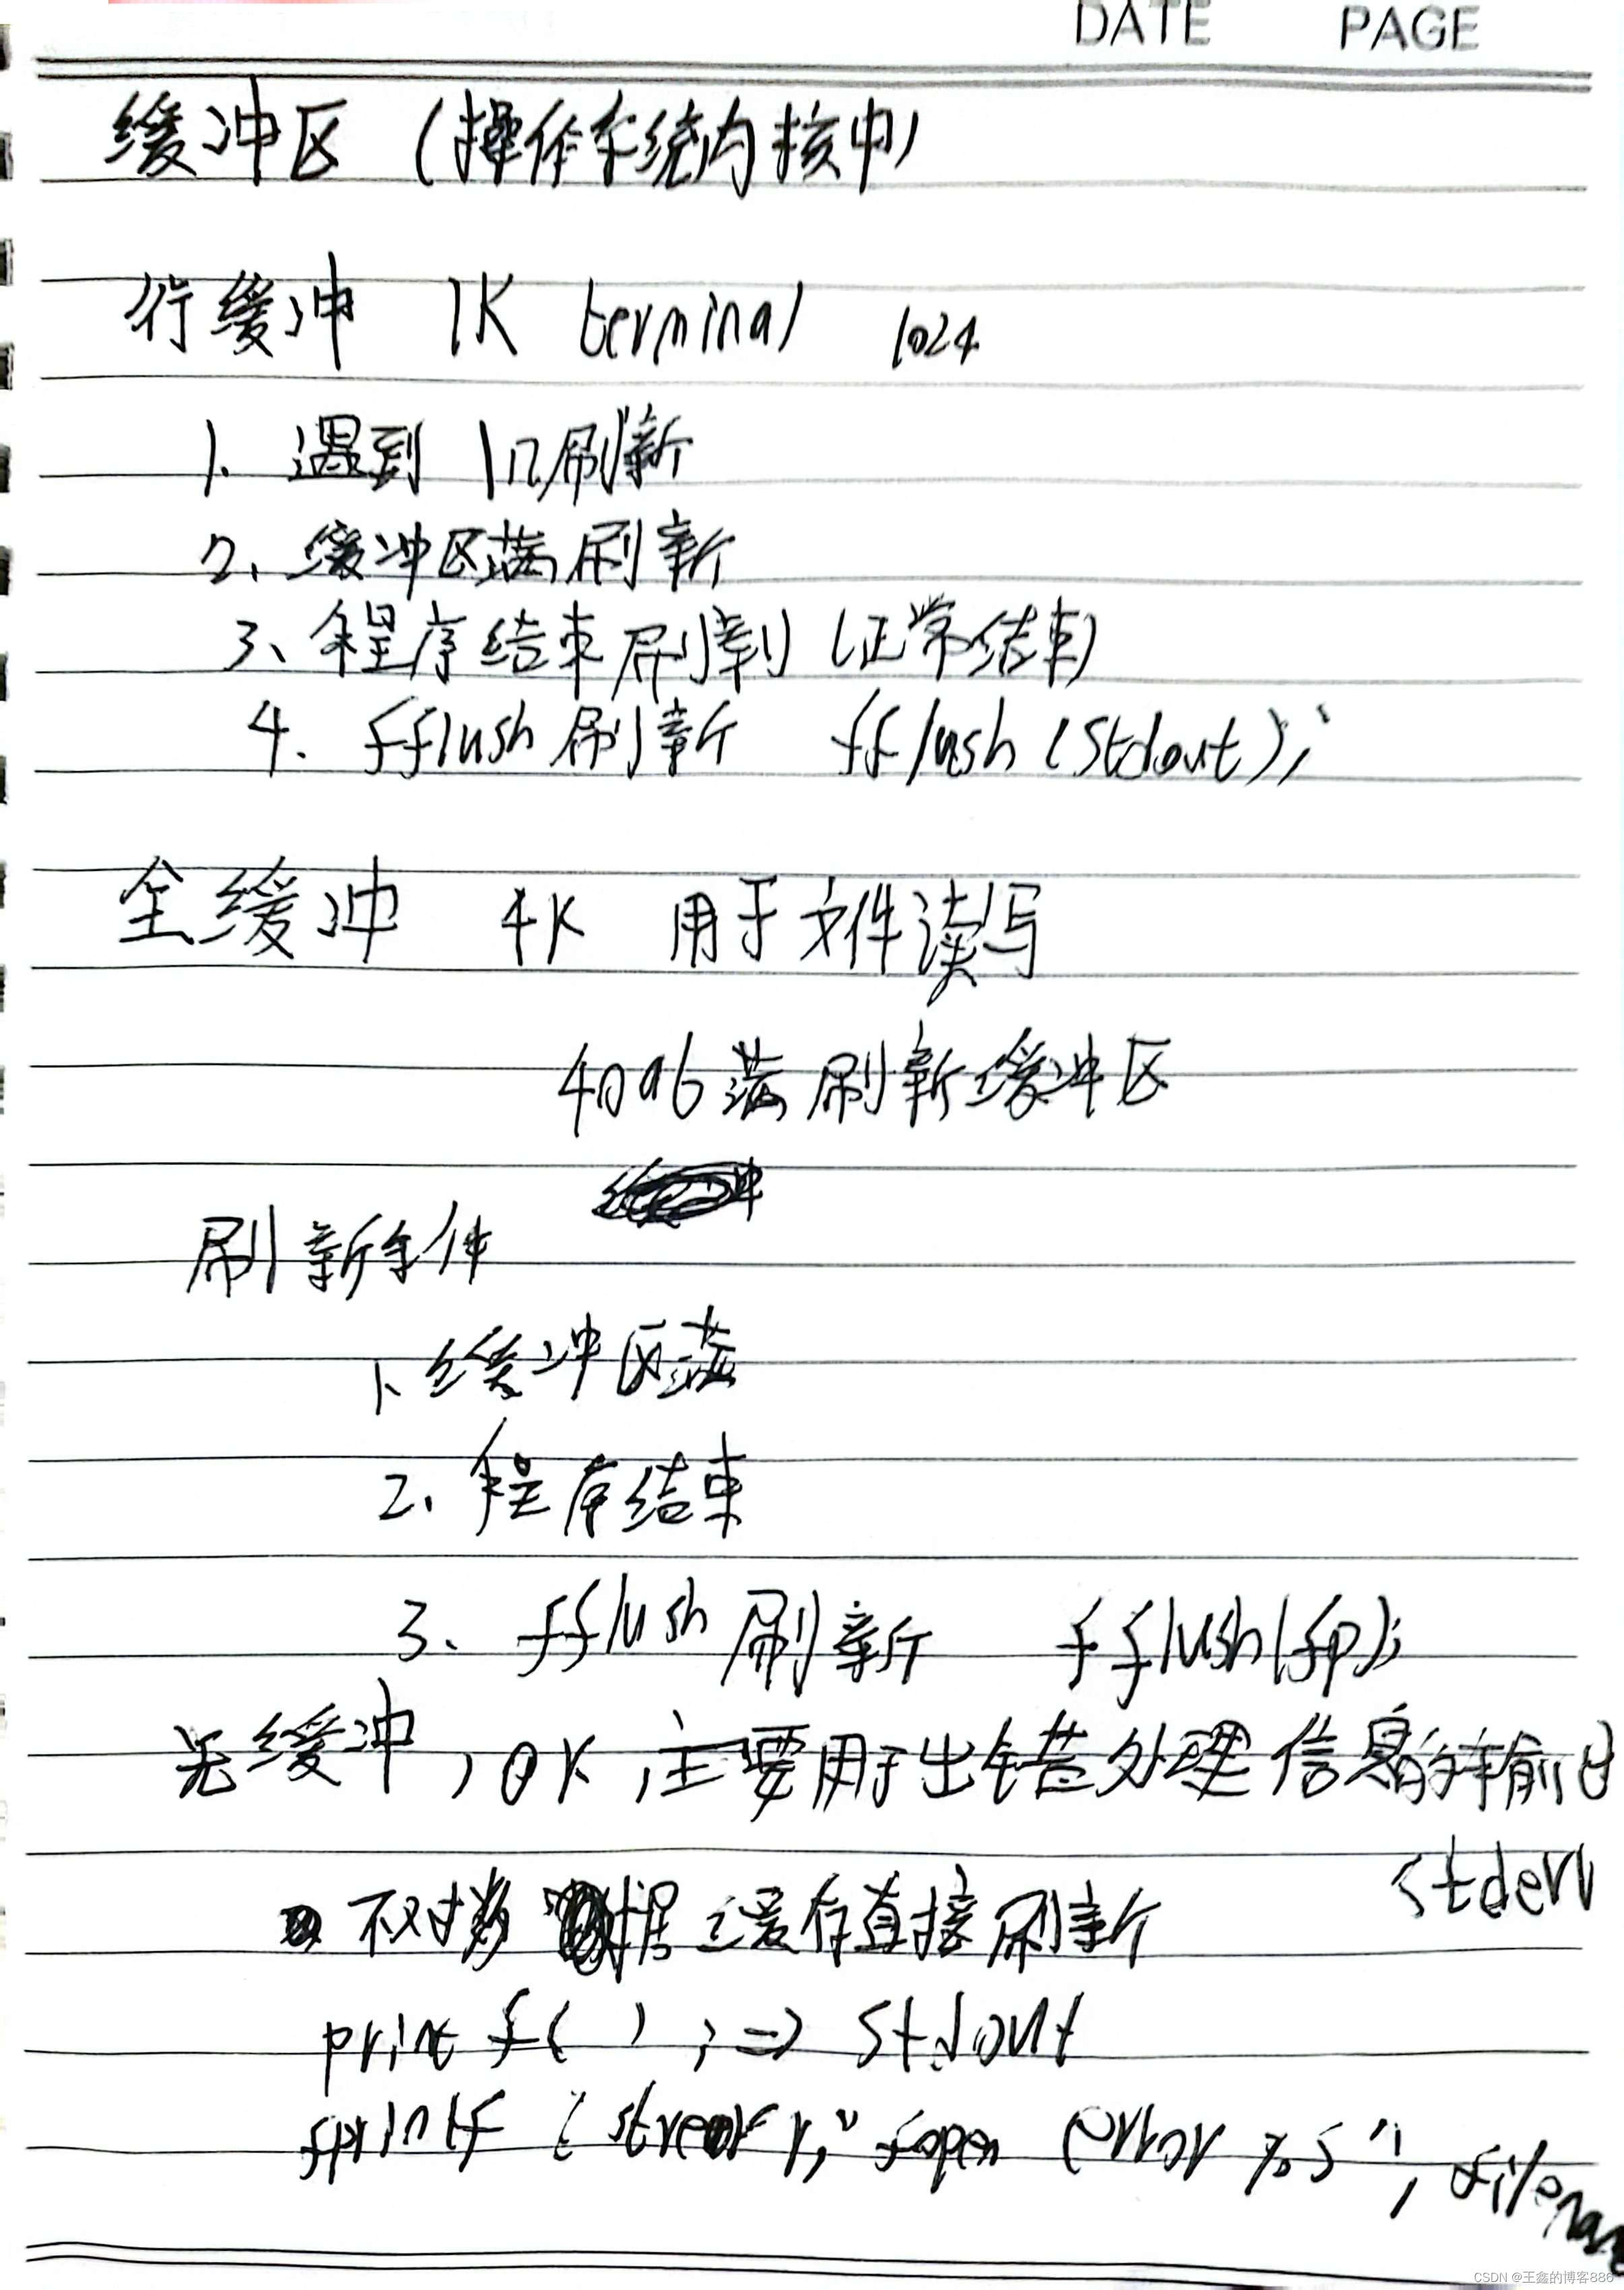 DATE PAGE
缓冲区 (操作系统内核中)
行缓冲 1K terminal 1024
1. 遇到 \n刷新
2、缓冲区满刷新
3、程序结束刷新 (正常结束)
4. fflush刷新 fflush (stdout);
全缓冲 4K 用于文件读写
4096满刷新缓冲区
刷新条件
1、缓冲区满
2、程序结束
3. fflush 刷新 fflush(fp);
无缓冲, 0K, 主要用于出错处理信息的输出
stderr
不对数据缓存直接刷新
printf( ); => stdout
fprintf ( "fopen error %s",
CSDN @王鑫的博客886